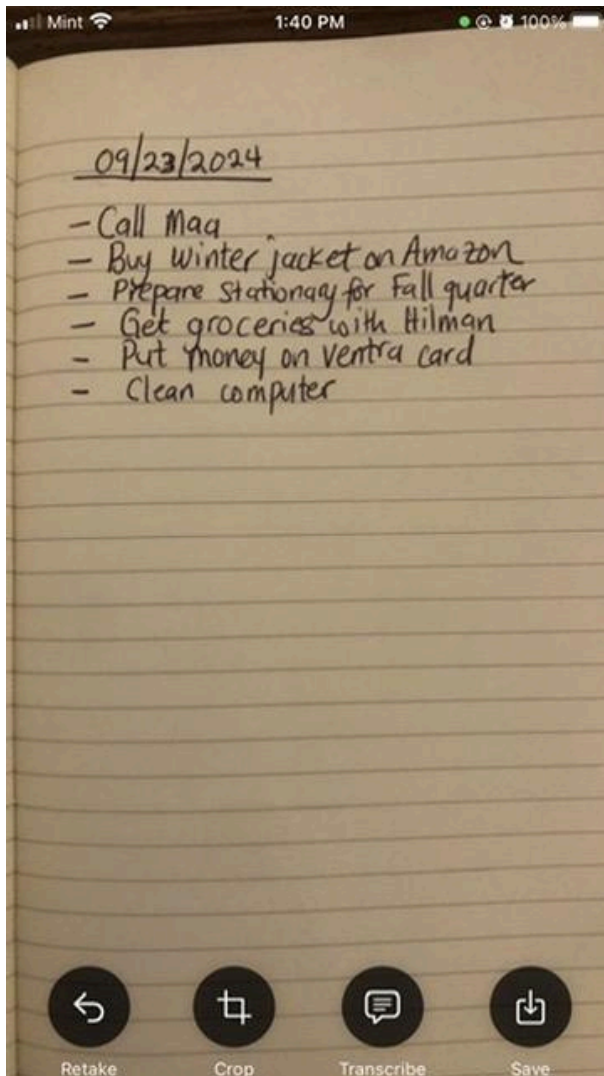 Mint 1:40 PM 100%
09/23/2024
- Call Maa
- Buy winter jacket on Amazon
- Prepare Stationary for Fall quarter
- Get groceries with Hilman
- Put money on Ventra card
- Clean computer
Retake Crop Transcribe Save